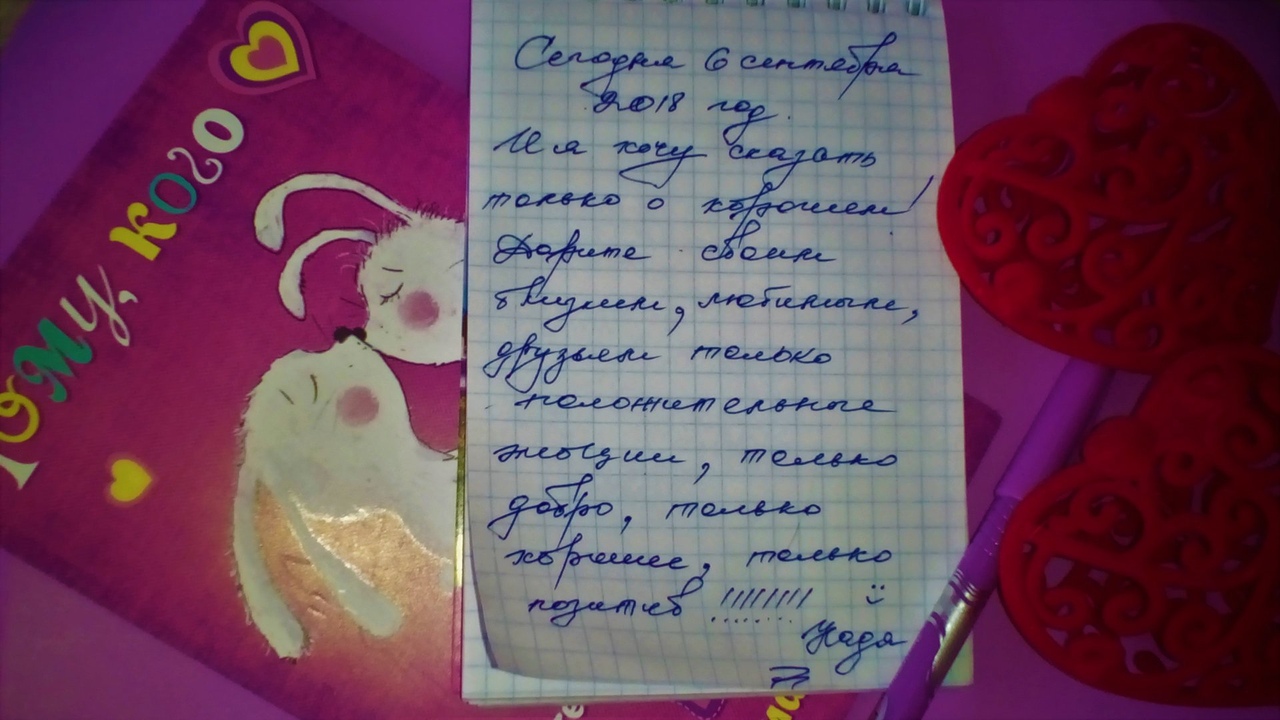 Тому, кого
Сегодня 6 сентября
2018 год.
И я хочу сказать
только о хорошем!
Дарите своим
близким, любимым,
друзьям только
положительные
эмоции, только
добро, только
хорошее, только
позитив !!!!!!!! :)
Надя